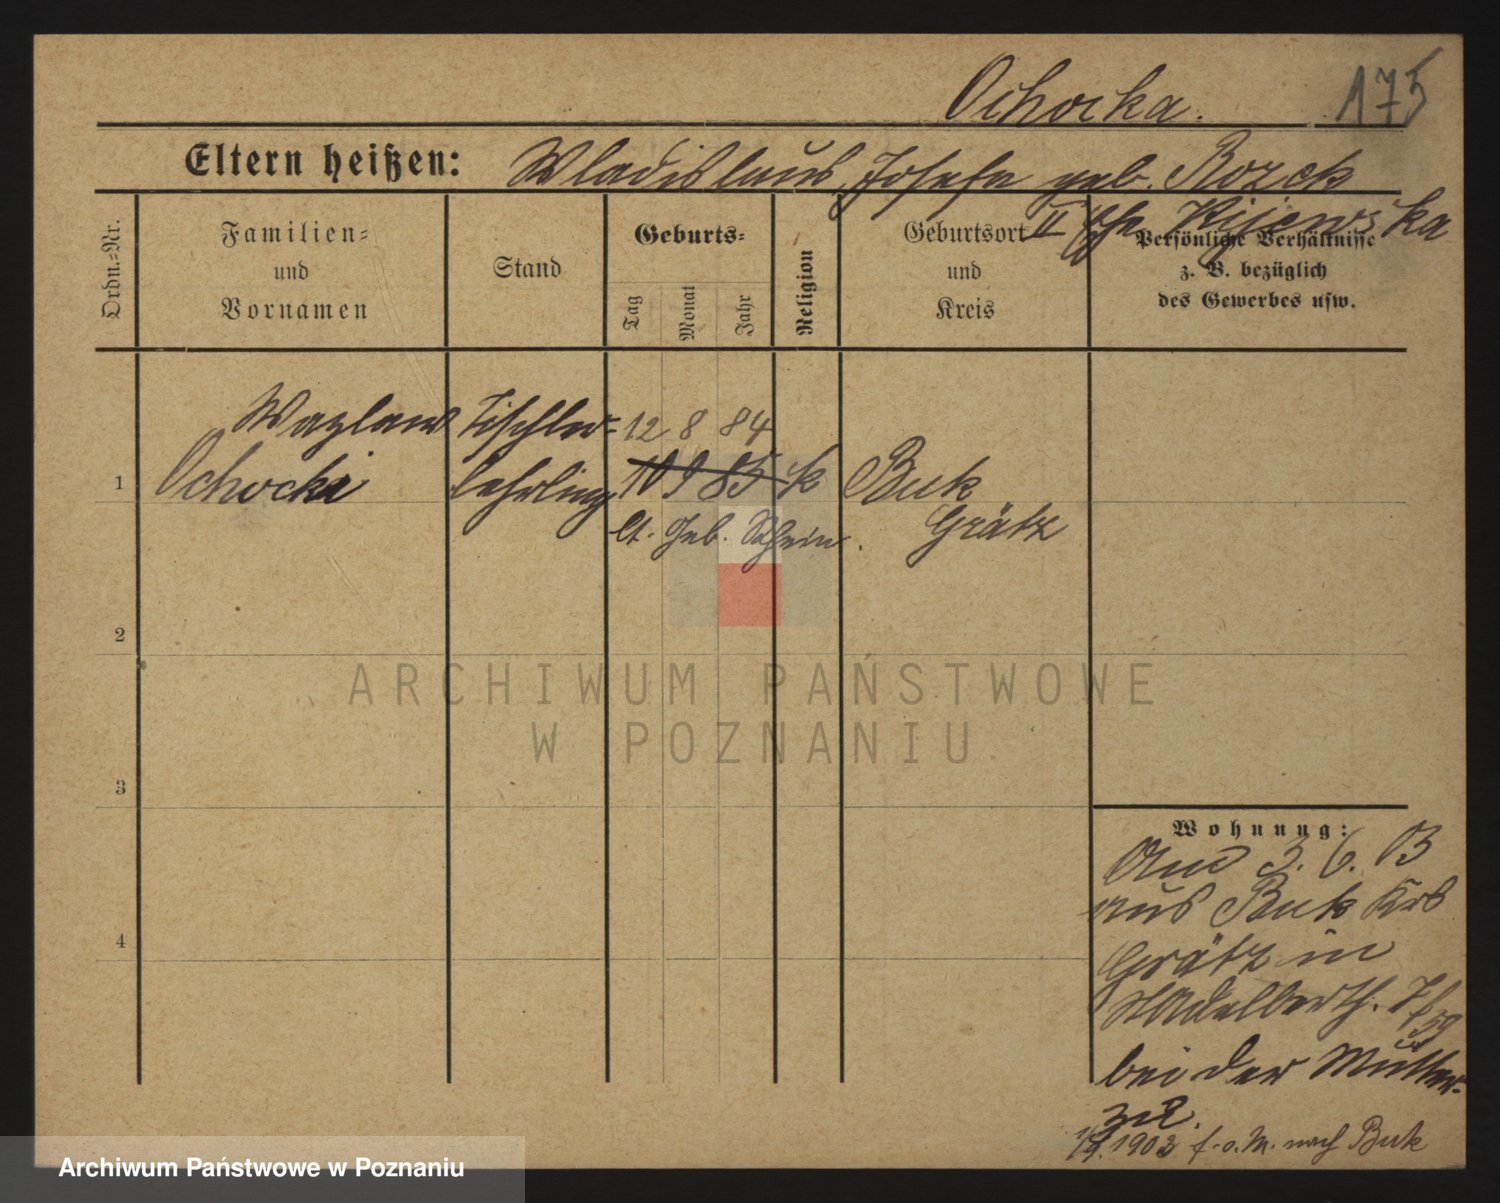 Ochocka. 175
Eltern heißen: Wladislaus, Josefa geb. Rozek
II Ehe Kijewska
Ordn.-Nr.
Familien-
und
Vornamen
Stand
Geburts-
Tag
Monat
Jahr
Religion
Geburtsort
und
Kreis
Persönliche Verhältnisse
z. B. bezüglich
des Gewerbes usw.
Wazlaw Tischler- 12 8 84
1 Ochocki lehrling 10 9 85 k Buk
lt. Geb. Schein. Grätz
2
ARCHIWUM PAŃSTWOWE
W POZNANIU
3
4
Wohnung:
3. 6. 03
aus Buk Krs
Grätz in
Adalberth.
bei der Mutter
zu.
1903 f. o. M. nach Buk
Archiwum Państwowe w Poznaniu